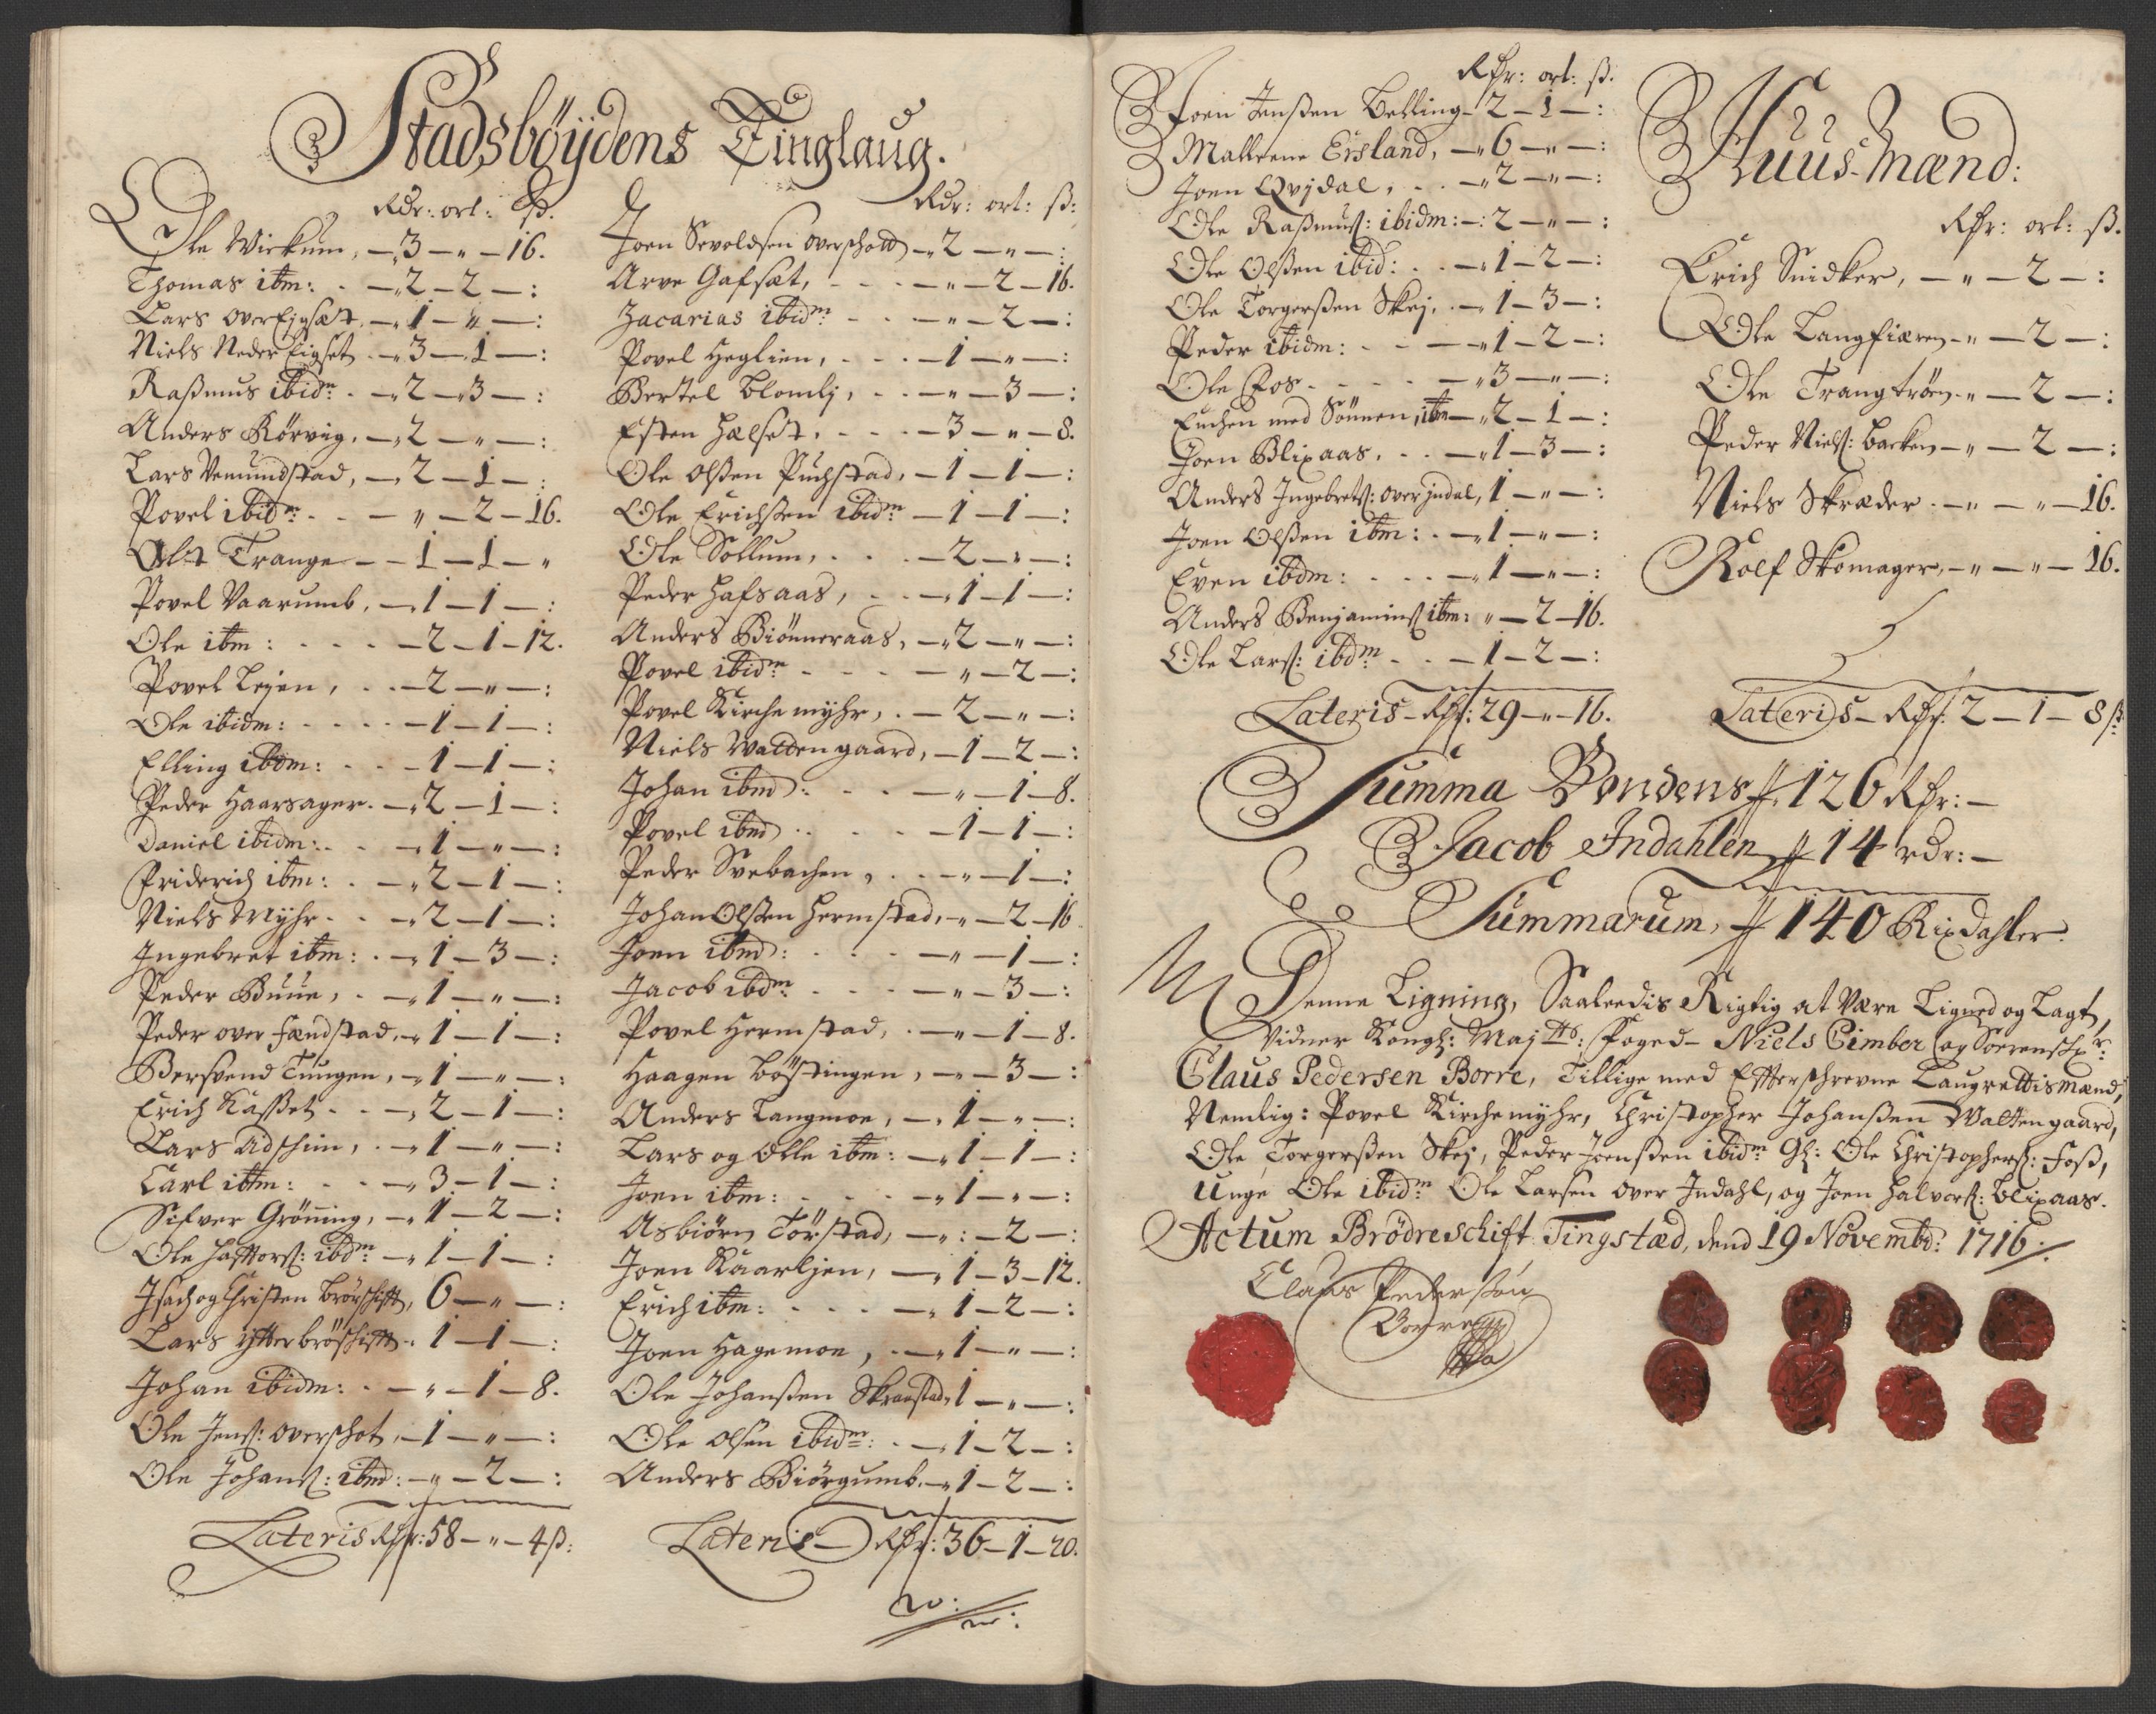 Stadsbøydens Tinglaug.
Rdr: ort: ß.
Ole Wirkum, — 3 — " — 16.
Thomas itm: . — 2 — 2 — :
Lars over Eigsæt, — 1 — " — :
Niels Neder Eigset . — 3 — 1 — :
Raßmus ibidm . — 2 — 3 — :
Anders Rörvig, — 2 — " — :
Lars Vemundstad, — 2 — 1 — :
Povel ibidm . . — " — 2 — 16.
Trange — 1 — 1 — "
Povel Vaarumb, — 1 — 1 — :
Ole itm: . . . — 2 — 1 — 12.
Povel Lejen, . . — 2 — " — :
Ole ibidm: . . . . — 1 — 1 — :
Elling ibdm: . . . — 1 — 1 — :
Peder Haarsager . — 2 — 1 — :
Daniel ibidm: . . — 1 — " — :
Friderich itm: . — 2 — 1 — :
Niels Myhr . . — 2 — 1 — :
Ingebret itm: . — 1 — 3 — :
Peder Buue, . — 1 — " — :
Peder over Fændstad, — 1 — 1 — :
Bersvend Tungen, — 1 — " — :
Erich Kaßet . . — 2 — 1 — :
Lars Adshim, . — 1 — " — :
Carl itm: . . — 3 — 1 — :
Sifver Grönning, — 1 — 2 — :
Ole Hafftorß: ibdm — 1 — 1 — :
Isach og Christen Brörschift, 6 — " — :
Lars ytterbröschift . 1 — 1 — :
Johan ibidm: . — " — 1 — 8.
Ole Jenß: overschot, — 1 — " — :
Ole Johanß: ibmd: — " — 2 — :
Lateris Rdr: 58 — " — 4 ß:
Rdr: ort: ß:
Joen Sevoldsen overschott — 2 — " — :
Arve Gafsæt, . . . — " — 2 — 16.
Zacarias ibidm . . — " — 2 — :
Povel Heglien, . . . — 1 — " — :
Bertel Blomlj, . . — " — 3 — :
Esten Hælset, . . . — 3 — " — 8.
Ole Olßen Puchstad, — 1 — 1 — :
Ole Erichßen ibidm — 1 — 1 — :
Ole Sollum, . . . — 2 — " — :
Peder Hafsaas, . . — 1 — 1 — :
Anders Biönneraas, — 2 — " — :
Povel ibidm . . . — " — 2 — :
Povel Kirchemyhr, . — 2 — " — :
Niels Wattengaard, — 1 — 2 — :
Johan ibmd: . . — " — 1 — 8.
Povel ibmd . . . — 1 — 1 — :
Peder Svebachen, . . — " — 1 — :
Johan Olßen Hermstad, — " — 2 — 16
Joen ibmd: . . . — " — 1 — :
Jacob ibdm . . . — " — 3 — :
Povel Hermstad, . — " — 1 — 8.
Haagen Böstingen, — " — 3 — :
Anders Langmoe, — 1 — " — :
Lars og Olle itm: — 1 — 1 — :
Joen itm: . . . — 1 — " — :
Asbiörn Törstad, — " : — 2 — :
Joen Kaarljen, — 1 — 3 — 12.
Erich itm: . . . — 1 — 2 — :
Joen Hagemoe, . — 1 — " — :
Ole Johanßen Skraastad, 1 — " — :
Ole Olsen ibidm: . — 1 — 2 — :
Anders Biörgumb, — 1 — 2 — :
Lateris — Rdr: 36 — 1 — 20.
Rdr: ort: ß.
Joen Jenßen Belling — 2 — 1 — :
Malleene Eisland, — 6 — " — :
Joen Qvjdal, . . — 2 — " — :
Ole Raßmuß: ibidm: — : 2 — " — :
Ole Olßen ibid: . . — 1 — 2 — :
Ole Torgerßen Skej, . — 1 — 3 — :
Peder ibidm: . . — 1 — 2 — :
Ole Fos . . . . — 3 — " — :
Enchen med Sönnen, itm — 2 — 1 — :
Joen Blixaas, . . — 1 — 3 — :
Anders Ingebretß: over jndal, 1 — " — :
Joen Olßen itm: . — 1 — " — :
Even ibdm: . . . — 1 — " — :
Anders Benjaminß itm: " — 2 — 16.
Ole Larß: ibdm . . — 1 — 2 — :
Lateris — Rdr: 29 — " — 16.
Huus-Mænd:
Rdr: ort: ß.
Erich Snidker, — " — 2 — :
Ole Langfiæren — " — 2 — :
Ole Trangtrøen — " — 2 — :
Peder Nielß: Backen — " — 2 — :
Niels Skræder . — " — " — 16.
Rolf Skomager, — " — " — 16.
Lateris — Rdr: 2 — 1 — 8 ß
Summa Bondens 126 Rdr: —
Jacob Indahlen 14 rdr: —
Summarum, 140 Rixdahler.
Denne Ligning, Saaleedis Rigtig at være Lignet og Lagt,
Vidner Kongl: Majtts: Foged — Niels Cimber og Sorenschr:
Claus Pedersen Borre, Tillige med Effterschrevne Laugrettismænd,
Nemlig: Povel Kirchemyhr, Christopher Johanßen Waltengaard,
Ole Torgerßen Skej, Peder Joenßen ibidm Gl: Ole Christopherß: Foß,
Unge Ole ibidm Ole Larsen over Indahl, og Joen Halvorß: Blixaas.
Actum Brödreschift Tingstæd, dend 19 Novembd: 1716 ./.
Claus Pederßøn
Borre